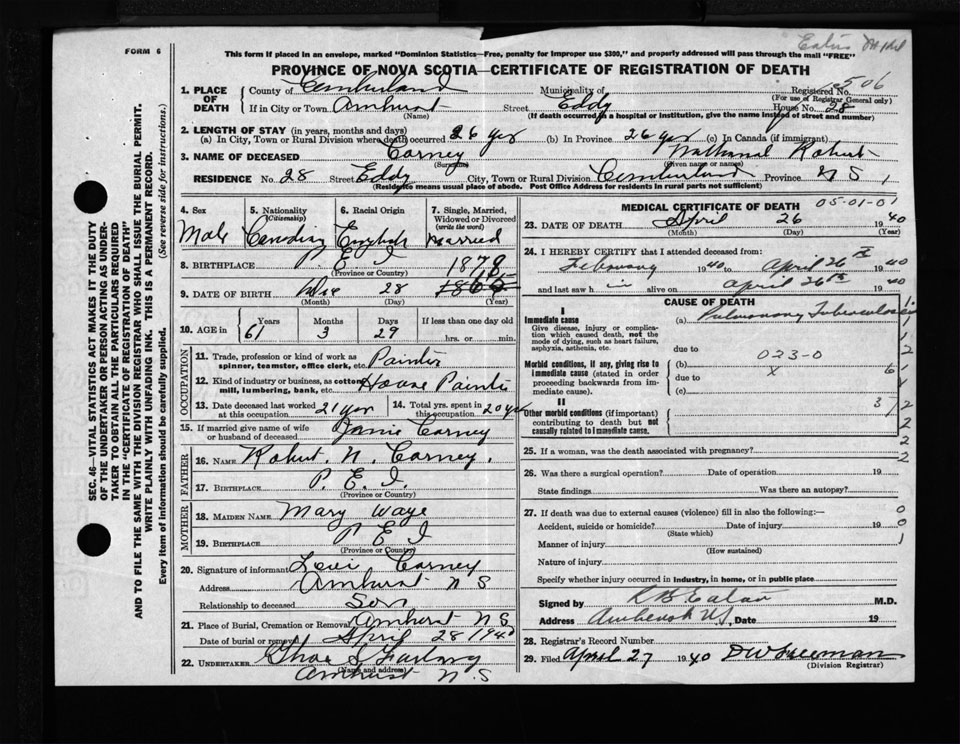 FORM 6
This form if placed in an envelope, marked "Dominion Statistics—Free, penalty for improper use $300," and properly addressed will pass through the mail "FREE"
PROVINCE OF NOVA SCOTIA—CERTIFICATE OF REGISTRATION OF DEATH
SEC. 46—VITAL STATISTICS ACT MAKES IT THE DUTY
OF THE UNDERTAKER OR PERSON ACTING AS UNDER-
TAKER TO OBTAIN ALL THE PARTICULARS REQUIRED
IN THE "CERTIFICATE OF REGISTRATION OF DEATH"
AND TO FILE THE SAME WITH THE DIVISION REGISTRAR WHO SHALL ISSUE THE BURIAL PERMIT.
WRITE PLAINLY WITH UNFADING INK. THIS IS A PERMANENT RECORD.
Every item of information should be carefully supplied. (See reverse side for instructions.)
1. PLACE OF DEATH
County of Cumberland Municipality of Registered No. 506
(For use of Registrar General only)
If in City or Town Amherst Street Eddy House No. 28
(Name) (If death occurred in a hospital or institution, give the name instead of street and number)
2. LENGTH OF STAY (in years, months and days)
(a) In City, Town or Rural Division where death occurred 26 yrs (b) In Province 26 yrs (c) In Canada (if immigrant)
3. NAME OF DECEASED Carney Nathaniel Robert
(Surname) (Given name or names)
RESIDENCE No. 28 Street Eddy City, Town or Rural Division Cumberland Province N S
(Residence means usual place of abode. Post Office Address for residents in rural parts not sufficient)
4. Sex
Male
5. Nationality (Citizenship)
Canadian
6. Racial Origin
English
7. Single, Married, Widowed or Divorced (write the word)
Married
8. BIRTHPLACE P. E. I
(Province or Country)
1878
9. DATE OF BIRTH 28
(Month) (Day) (Year)
10. AGE in Years Months Days If less than one day old
61 3 29 hrs. or min.
OCCUPATION
11. Trade, profession or kind of work as spinner, teamster, office clerk, etc. Painter
12. Kind of industry or business, as cotton mill, lumbering, bank, etc. House Painter
13. Date deceased last worked at this occupation 21 yrs
14. Total yrs. spent in this occupation 20 yrs
15. If married give name of wife or husband of deceased Carney
FATHER
16. NAME Robert. N. Carney.
17. BIRTHPLACE P. E. I.
(Province or Country)
MOTHER
18. MAIDEN NAME Mary Waye
19. BIRTHPLACE P E I
(Province or Country)
20. Signature of informant Levi Carney
Address Amherst N S
Relationship to deceased Son
21. Place of Burial, Cremation or Removal Amherst N S
Date of burial or removal April 28 1940
22. UNDERTAKER
(Name and address)
Amherst N. S
MEDICAL CERTIFICATE OF DEATH 05-01-01
23. DATE OF DEATH April 26 1940
(Month) (Day) (Year)
24. I HEREBY CERTIFY that I attended deceased from:
February 1940 to April 26th 1940
and last saw him alive on April 26th 1940
CAUSE OF DEATH
I
Immediate cause
Give disease, injury or complication which caused death, not the mode of dying, such as heart failure, asphyxia, asthenia, etc.
(a) Pulmonary Tuberculosis
due to
Morbid conditions, if any, giving rise to immediate cause (stated in order proceeding backwards from immediate cause).
(b) 023-0
due to x
(c)
II
Other morbid conditions (if important) contributing to death but not causally related to immediate cause.
25. If a woman, was the death associated with pregnancy?
26. Was there a surgical operation? Date of operation 19
State findings Was there an autopsy?
27. If death was due to external causes (violence) fill in also the following:—
Accident, suicide or homicide? Date of injury 19
(State which)
Manner of injury
(How sustained)
Nature of injury
Specify whether injury occurred in industry, in home, or in public place
Signed by Eaton M.D.
Address Amherst N.S. Date 19
28. Registrar's Record Number
29. Filed April 27 1940 D W Freeman
(Division Registrar)